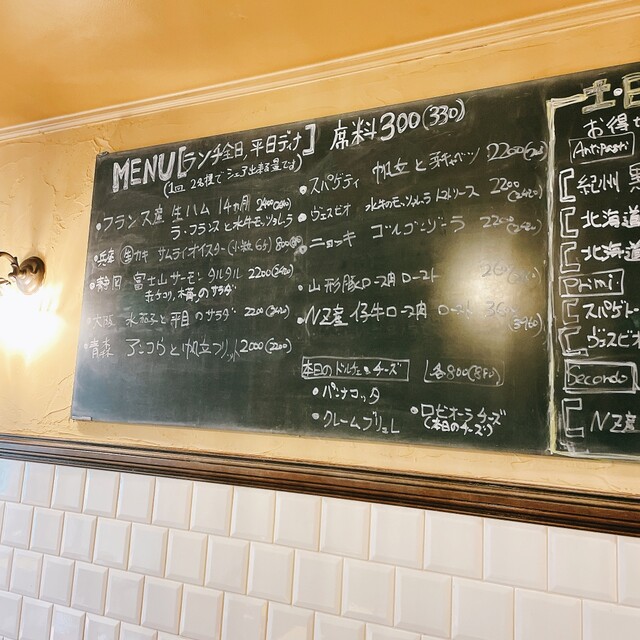 MENU[ランチ全日,平日ディナ] 席料300(330)
(1皿 2名様でシェア出来る量です)
・フランス産 生ハム 14カ月
ラ・フランスと水牛モッツァレラ
・兵庫 生カキ サムライオイスター
・静岡 富士山サーモン タルタル 2200
赤チコリ、のサラダ
・大阪 水茄子と平目のサラダ 2200
・青森 アンコウと帆立フリット 2000(2200)
・スパゲティ 帆立と 2200
・ヴェスビオ 水牛のモッツァレラ トマトソース 2200
・ニョッキ ゴルゴンゾーラ
・山形豚ロース肉 ロースト
・NZ産 仔牛ロース肉 ロースト
本日のドルチェ&チーズ 各800
・パンナコッタ
・クレームブリュレ
・ロビオーラチーズ
(本日のチーズ)
土・日
お得
Antipasti
紀州
北海道
北海道
Primi
スパゲト
ヴェスビオ
Secondo
NZ産